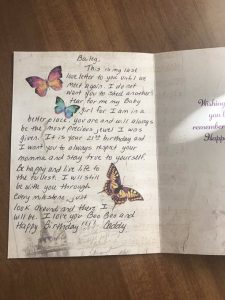 Bailey,
This is my last
love letter to you until we
meet again. I do not
want you to shed another
tear for me my Baby
girl for I am in a
better place. you are and will always
be the most precious jewel I was
given. It is your 21st birthday and
I want you to always respect your
momma and stay true to yourself.
Be happy and live life to
the fullest. I will still
be with you through
every milestone, just
look around and there I
will be. I love you Boo Boo and
Happy Birthday!!!! Daddy
Wishing
you
remember
Happ